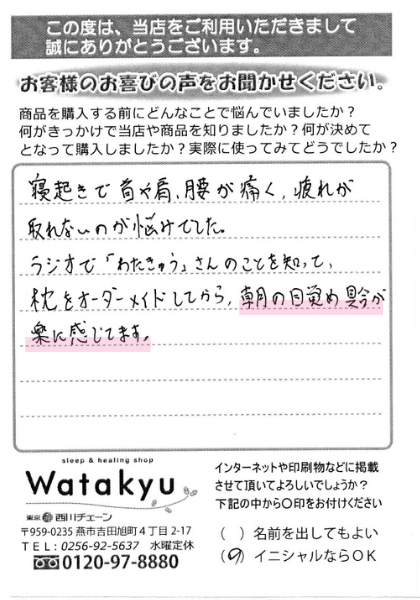 この度は、当店をご利用いただきまして
誠にありがとうございます。
お客様のお喜びの声をお聞かせください。
商品を購入する前にどんなことで悩んでいましたか？
何がきっかけで当店や商品を知りましたか？何が決めて
となって購入しましたか？実際に使ってみてどうでしたか？
寝起きで首や肩、腰が痛く、疲れが
取れないのが悩みでした。
ラジオで「わたきゅう」さんのことを知って、
枕をオーダーメイドしてから、朝の目覚め具合が
楽に感じてます。
sleep & healing shop
Watakyu
東京 西川チェーン
〒959-0235 燕市吉田旭町4丁目2-17
TEL: 0256-92-5637 水曜定休
0120-97-8880
インターネットや印刷物などに掲載
させて頂いてよろしいでしょうか？
下記の中から〇印をお付けください
（ ）名前を出してもよい
（〇）イニシャルならOK